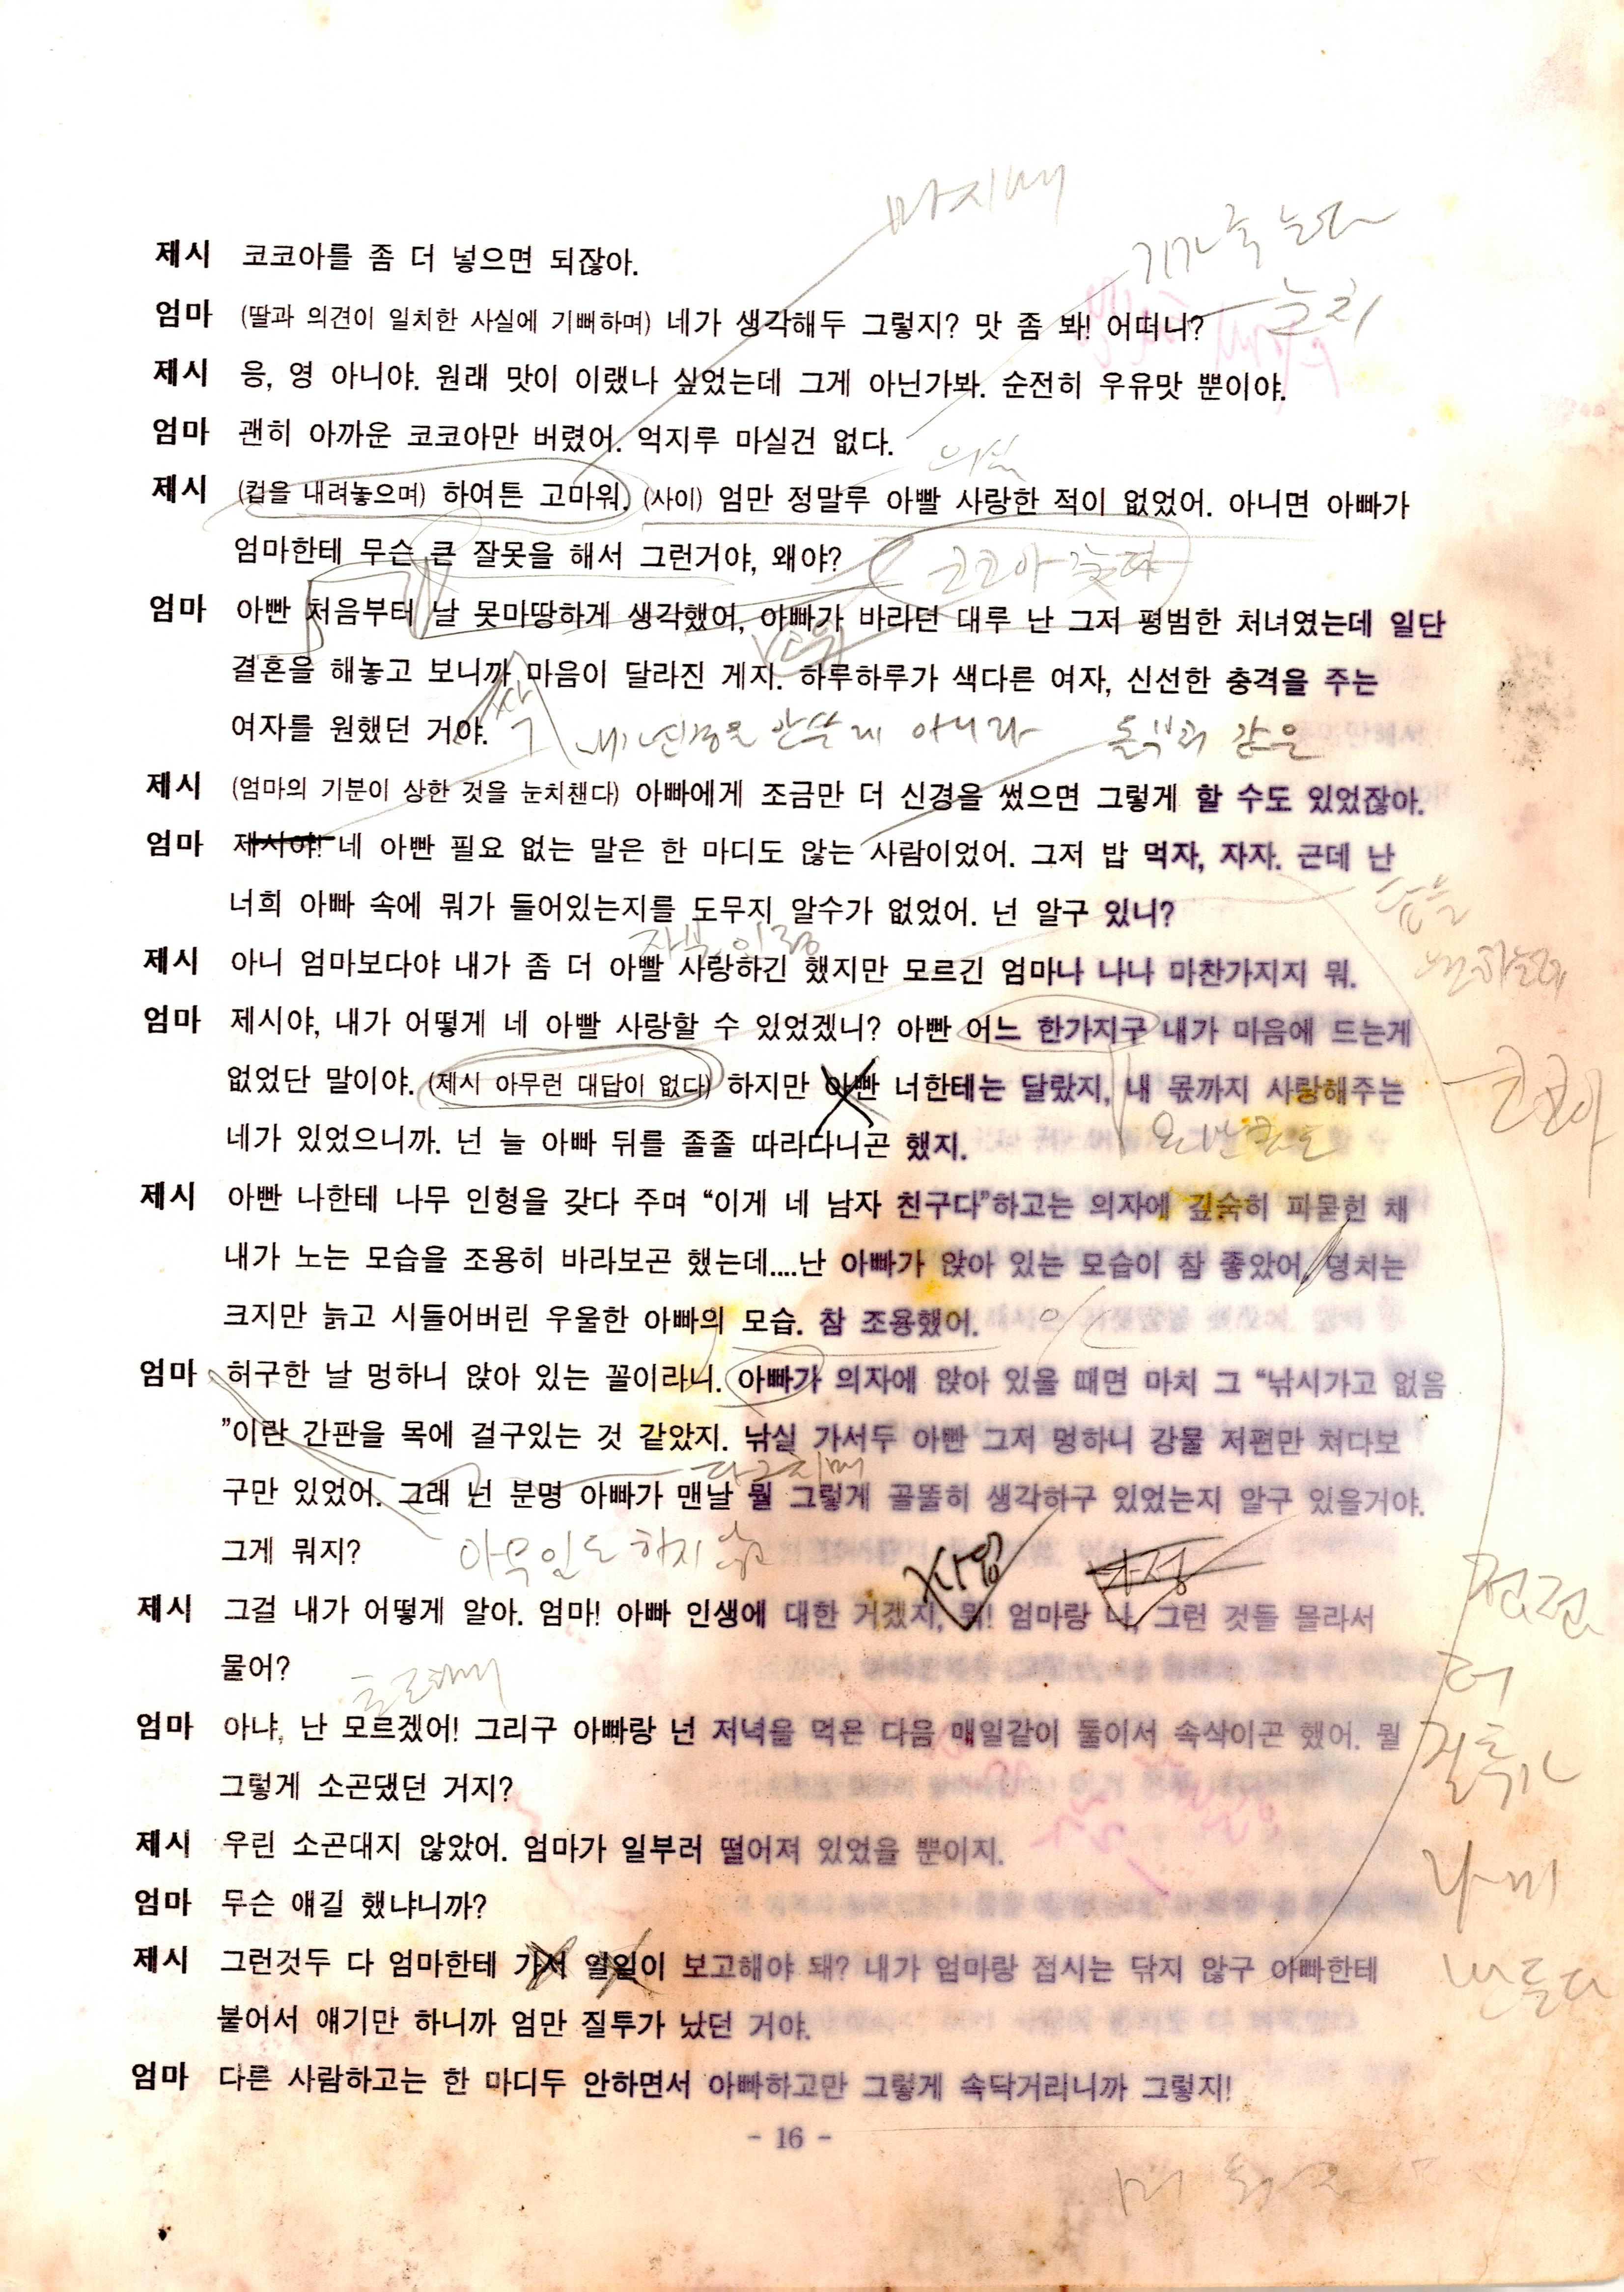 마지매
제시 코코아를 좀 더 넣으면 되잖아.
엄마 (딸과 의견이 일치한 사실에 기뻐하며) 네가 생각해두 그렇지? 맛 좀 봐! 어떠니?
눈치
제시 응, 영 아니야. 원래 맛이 이랬나 싶었는데 그게 아닌가봐. 순전히 우유맛 뿐이야.
엄마 괜히 아까운 코코아만 버렸어. 억지루 마실건 없다.
제시 (컵을 내려놓으며) 하여튼 고마워. (사이) 엄만 정말루 아빨 사랑한 적이 없었어. 아니면 아빠가
엄마한테 무슨 큰 잘못을 해서 그런거야, 왜야?
코코아
엄마 아빤 처음부터 날 못마땅하게 생각했어, 아빠가 바라던 대루 난 그저 평범한 처녀였는데 일단
결혼을 해놓고 보니까 마음이 달라진 게지. 하루하루가 색다른 여자, 신선한 충격을 주는
여자를 원했던 거야.
싹
아니라
같은
제시 (엄마의 기분이 상한 것을 눈치챈다) 아빠에게 조금만 더 신경을 썼으면 그렇게 할 수도 있었잖아.
엄마 제시야! 네 아빤 필요 없는 말은 한 마디도 않는 사람이었어. 그저 밥 먹자, 자자. 근데 난
너희 아빠 속에 뭐가 들어있는지를 도무지 알수가 없었어. 넌 알구 있니?
제시 아니 엄마보다야 내가 좀 더 아빨 사랑하긴 했지만 모르긴 엄마나 나나 마찬가지지 뭐.
엄마 제시야, 내가 어떻게 네 아빨 사랑할 수 있었겠니? 아빤 어느 한가지구 내가 마음에 드는게
없었단 말이야. (제시 아무런 대답이 없다) 하지만 아빤 너한테는 달랐지, 내 몫까지 사랑해주는
네가 있었으니까. 넌 늘 아빠 뒤를 졸졸 따라다니곤 했지.
제시 아빤 나한테 나무 인형을 갖다 주며 “이게 네 남자 친구다”하고는 의자에 깊숙히 파묻힌 채
내가 노는 모습을 조용히 바라보곤 했는데....난 아빠가 앉아 있는 모습이 참 좋았어, 덩치는
크지만 늙고 시들어버린 우울한 아빠의 모습. 참 조용했어.
엄마 허구한 날 멍하니 앉아 있는 꼴이라니. 아빠가 의자에 앉아 있을 때면 마치 그 “낚시가고 없음
”이란 간판을 목에 걸구있는 것 같았지. 낚실 가서두 아빤 그저 멍하니 강물 저편만 쳐다보
다그치며
구만 있었어. 그래 넌 분명 아빠가 맨날 뭘 그렇게 골똘히 생각하구 있었는지 알구 있을거야.
그게 뭐지?
아무일도 하지 않고
제시 그걸 내가 어떻게 알아. 엄마! 아빠 인생에 대한 거겠지, 뭐! 엄마랑 나, 그런 것들 몰라서
물어?
엄마 아냐, 난 모르겠어! 그리구 아빠랑 넌 저녁을 먹은 다음 매일같이 둘이서 속삭이곤 했어. 뭘
그렇게 소곤댔던 거지?
제시 우린 소곤대지 않았어. 엄마가 일부러 떨어져 있었을 뿐이지.
엄마 무슨 얘길 했냐니까?
제시 그런것두 다 엄마한테 가서 일일이 보고해야 돼? 내가 엄마랑 접시는 닦지 않구 아빠한테
붙어서 얘기만 하니까 엄만 질투가 났던 거야.
엄마 다른 사람하고는 한 마디두 안하면서 아빠하고만 그렇게 속닥거리니까 그렇지!
점점
더
질투가
나게
만든다
- 16 -